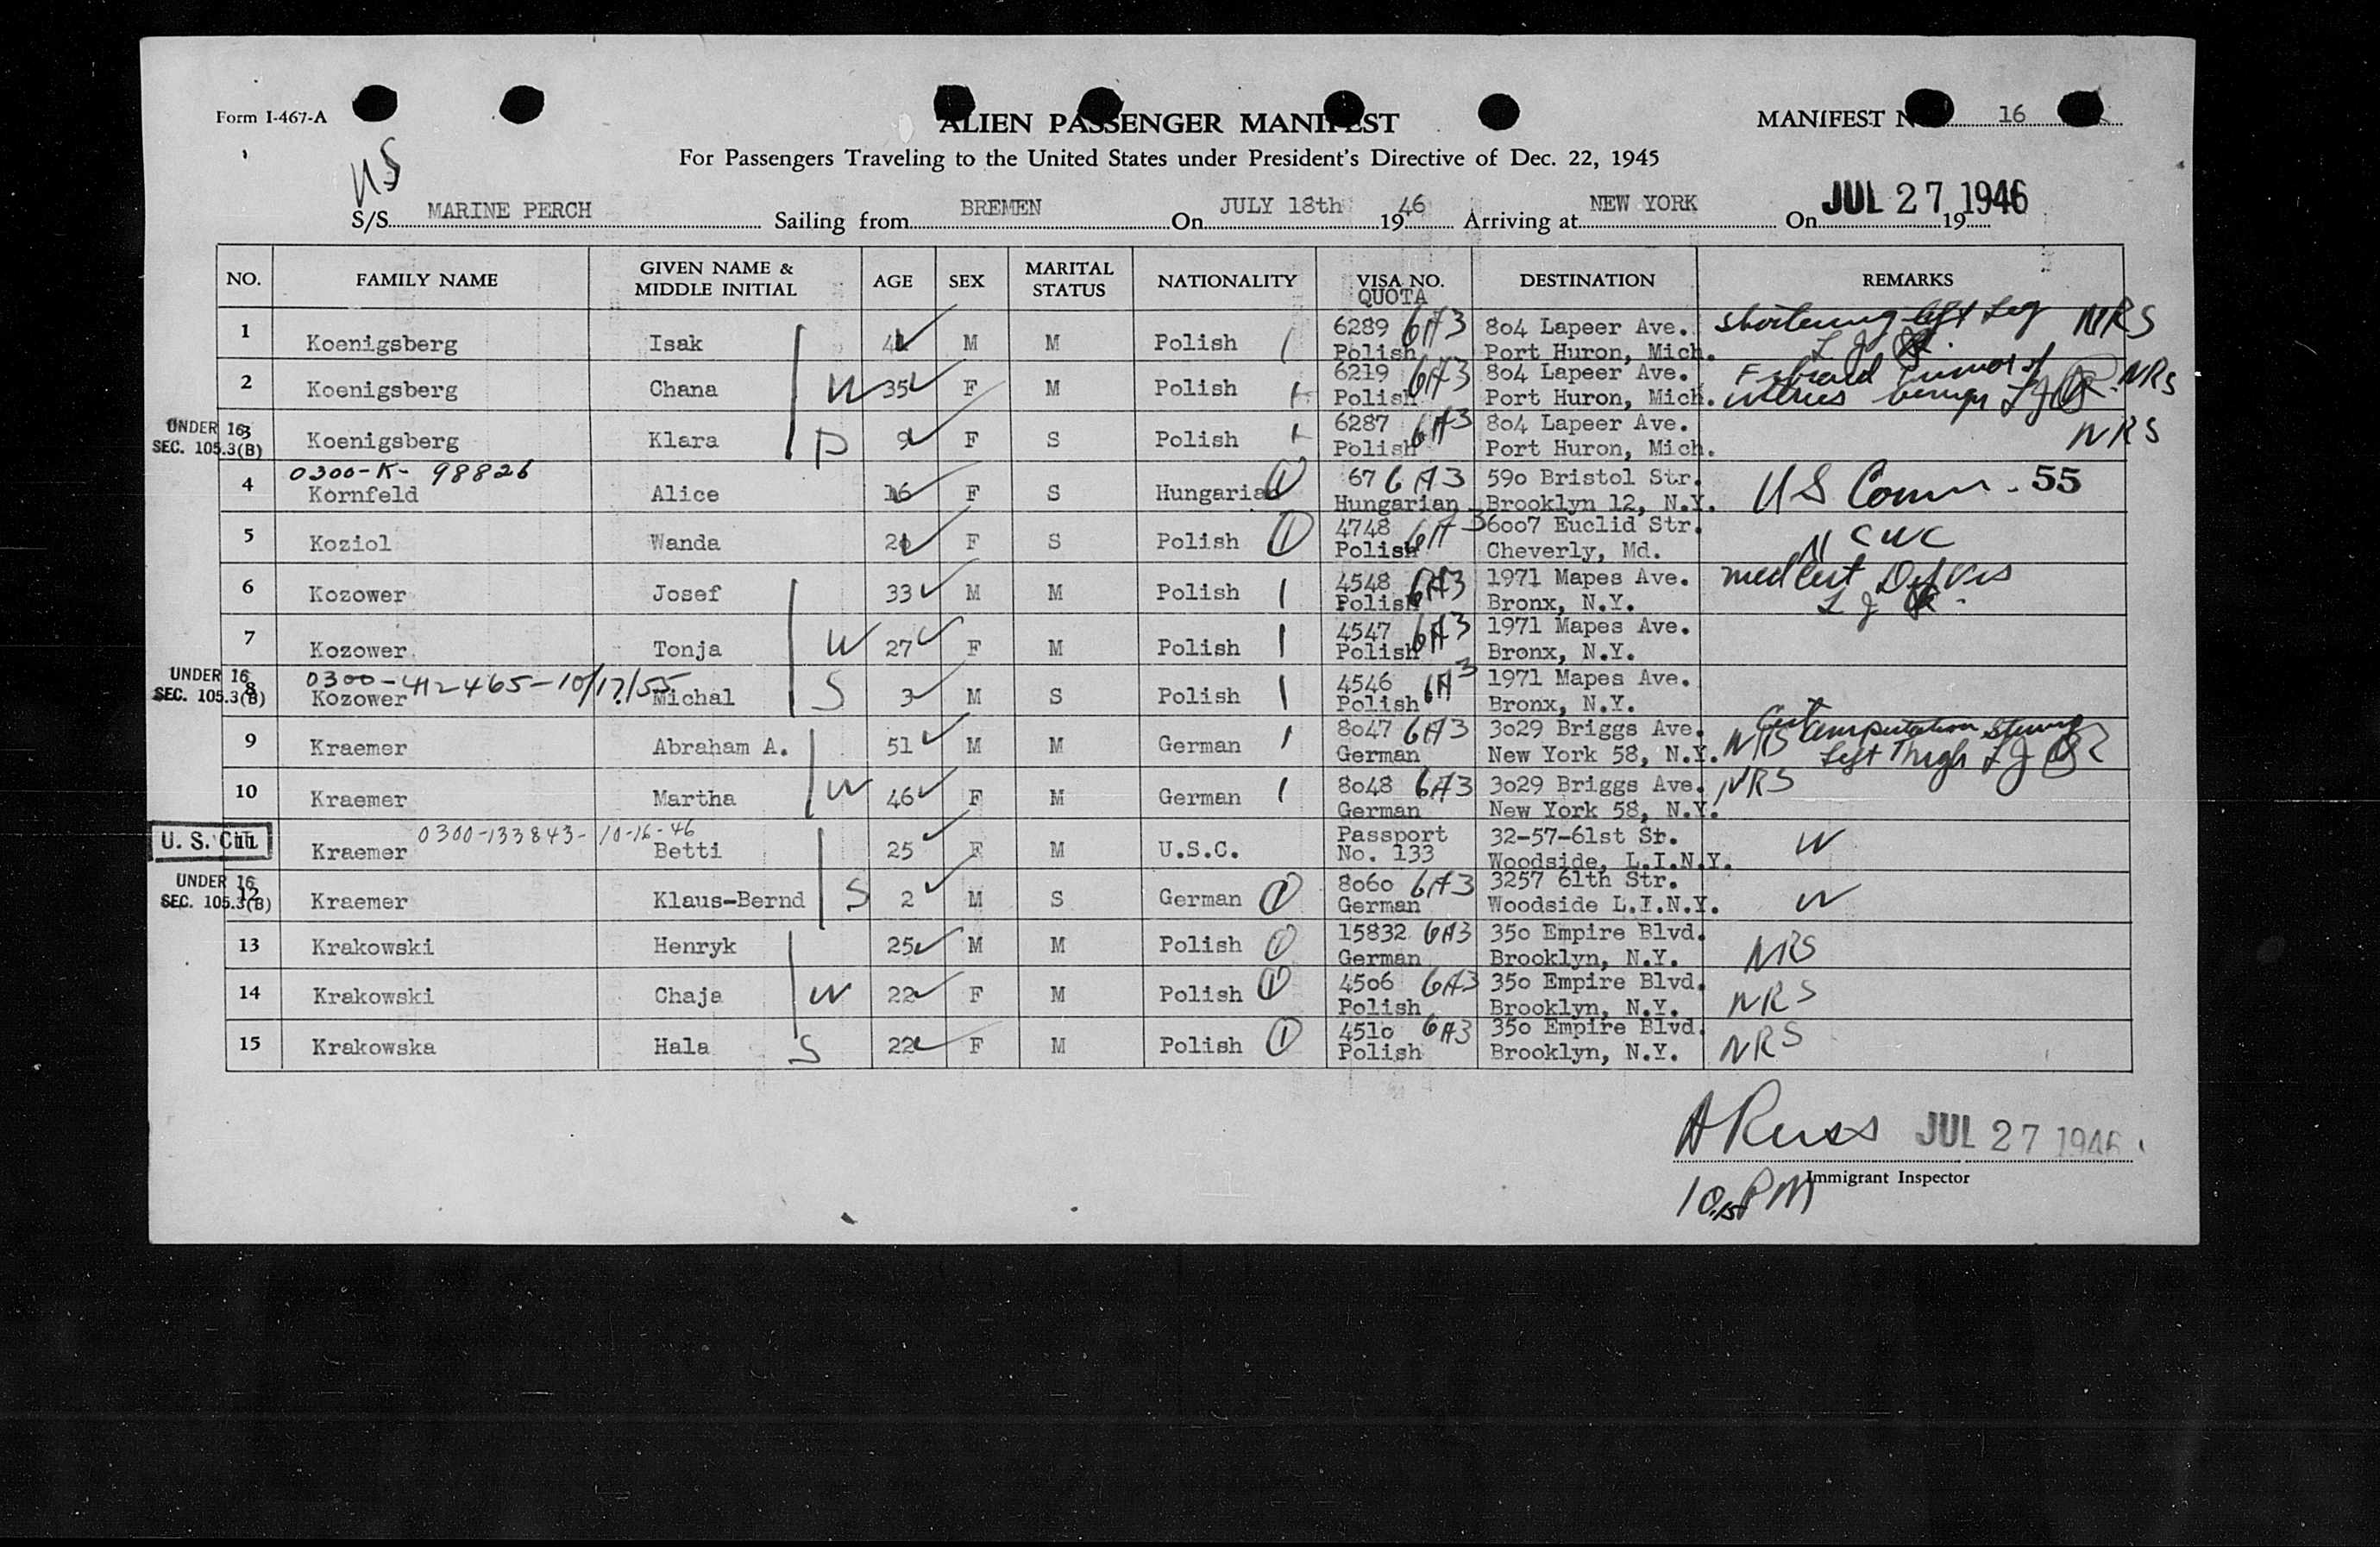 Form I-467-A
ALIEN PASSENGER MANIFEST
MANIFEST N 16
For Passengers Traveling to the United States under President's Directive of Dec. 22, 1945
US
S/S MARINE PERCH Sailing from BREMEN On JULY 18th 19 46 Arriving at NEW YORK On JUL 27 1946 19
NO. FAMILY NAME GIVEN NAME & MIDDLE INITIAL AGE SEX MARITAL STATUS NATIONALITY VISA NO. QUOTA DESTINATION REMARKS
1 Koenigsberg Isak M M Polish 6289 6A3 804 Lapeer Ave. shortening left Leg NRS
Polish Port Huron, Mich.
2 Koenigsberg Chana W 35 F M Polish 6219 6A3 804 Lapeer Ave. Fibroid tumor of NRS
Polish Port Huron, Mich. uterus benign
UNDER 16
SEC. 105.3(B)
3 Koenigsberg Klara D 9 F S Polish 6287 6A3 804 Lapeer Ave. NRS
Polish Port Huron, Mich.
0300-K-98826
4 Kornfeld Alice 16 F S Hungarian 67 6A3 590 Bristol Str. US Comm - 55
Hungarian Brooklyn 12, N.Y.
5 Koziol Wanda F S Polish 4748 6A3 6007 Euclid Str. NCWC
Polish Cheverly, Md.
6 Kozower Josef 33 M M Polish 4548 6A3 1971 Mapes Ave. med cert Def Vis
Polish Bronx, N.Y.
7 Kozower Tonja W 27 F M Polish 4547 6A3 1971 Mapes Ave.
Polish Bronx, N.Y.
UNDER 16
SEC. 105.3(B)
0300-412465-10/17/55
8 Kozower Michal S 3 M S Polish 4546 6A3 1971 Mapes Ave.
Polish Bronx, N.Y.
9 Kraemer Abraham A. 51 M M German 8047 6A3 3029 Briggs Ave. NRS Cert amputation stump
German New York 58, N.Y. Left Thigh
10 Kraemer Martha W 46 F M German 8048 6A3 3029 Briggs Ave. NRS
German New York 58, N.Y.
0300-133843-10-16-46
U. S. Cit. 11 Kraemer Betti 25 F M U.S.C. Passport 32-57-61st St. W
No. 133 Woodside, L.I.N.Y.
UNDER 16
SEC. 105.3(B)
12 Kraemer Klaus-Bernd S 2 M S German 8060 6A3 3257 61th Str. W
German Woodside L.I.N.Y.
13 Krakowski Henryk 25 M M Polish 15832 6A3 350 Empire Blvd. NRS
German Brooklyn, N.Y.
14 Krakowski Chaja W 22 F M Polish 4506 6A3 350 Empire Blvd. NRS
Polish Brooklyn, N.Y.
15 Krakowska Hala S 22 F M Polish 4510 6A3 350 Empire Blvd. NRS
Polish Brooklyn, N.Y.
A Russ JUL 27 1946
Immigrant Inspector
10.15 PM